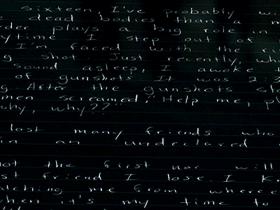 sixteen, I've probably w
dead bodies than a
der play, a big role in
ytime I step out of
I'm faced with the ri
g shot. Just recently, wh
sound asleep, I awoke
of gunshots. It was 2:
g. After the gunshots s
men screamed: Help me, p
why, why??
lost many friends who
in an undeclared
not the first nor will
st friend I lose. I k
tching me from wherev
when it's my time to